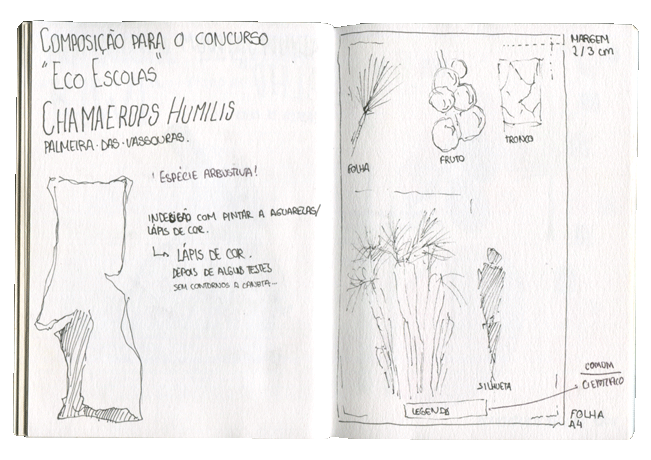 COMPOSIÇÃO PARA O CONCURSO
"ECO ESCOLAS"
CHAMAEROPS HUMILIS
PALMEIRA-DAS-VASSOURAS.
! ESPÉCIE ARBUSTIVA!
INDECISÃO COM PINTAR A AGUARELAS/
LÁPIS DE COR.
↳ LÁPIS DE COR.
DEPOIS DE ALGUNS TESTES
SEM CONTORNOS A CANETA...
MARGEM
2/3 cm
FOLHA
FRUTO
TRONCO
SILHUETA
LEGENDA
COMUM
CIENTÍFICO
FOLHA
A4